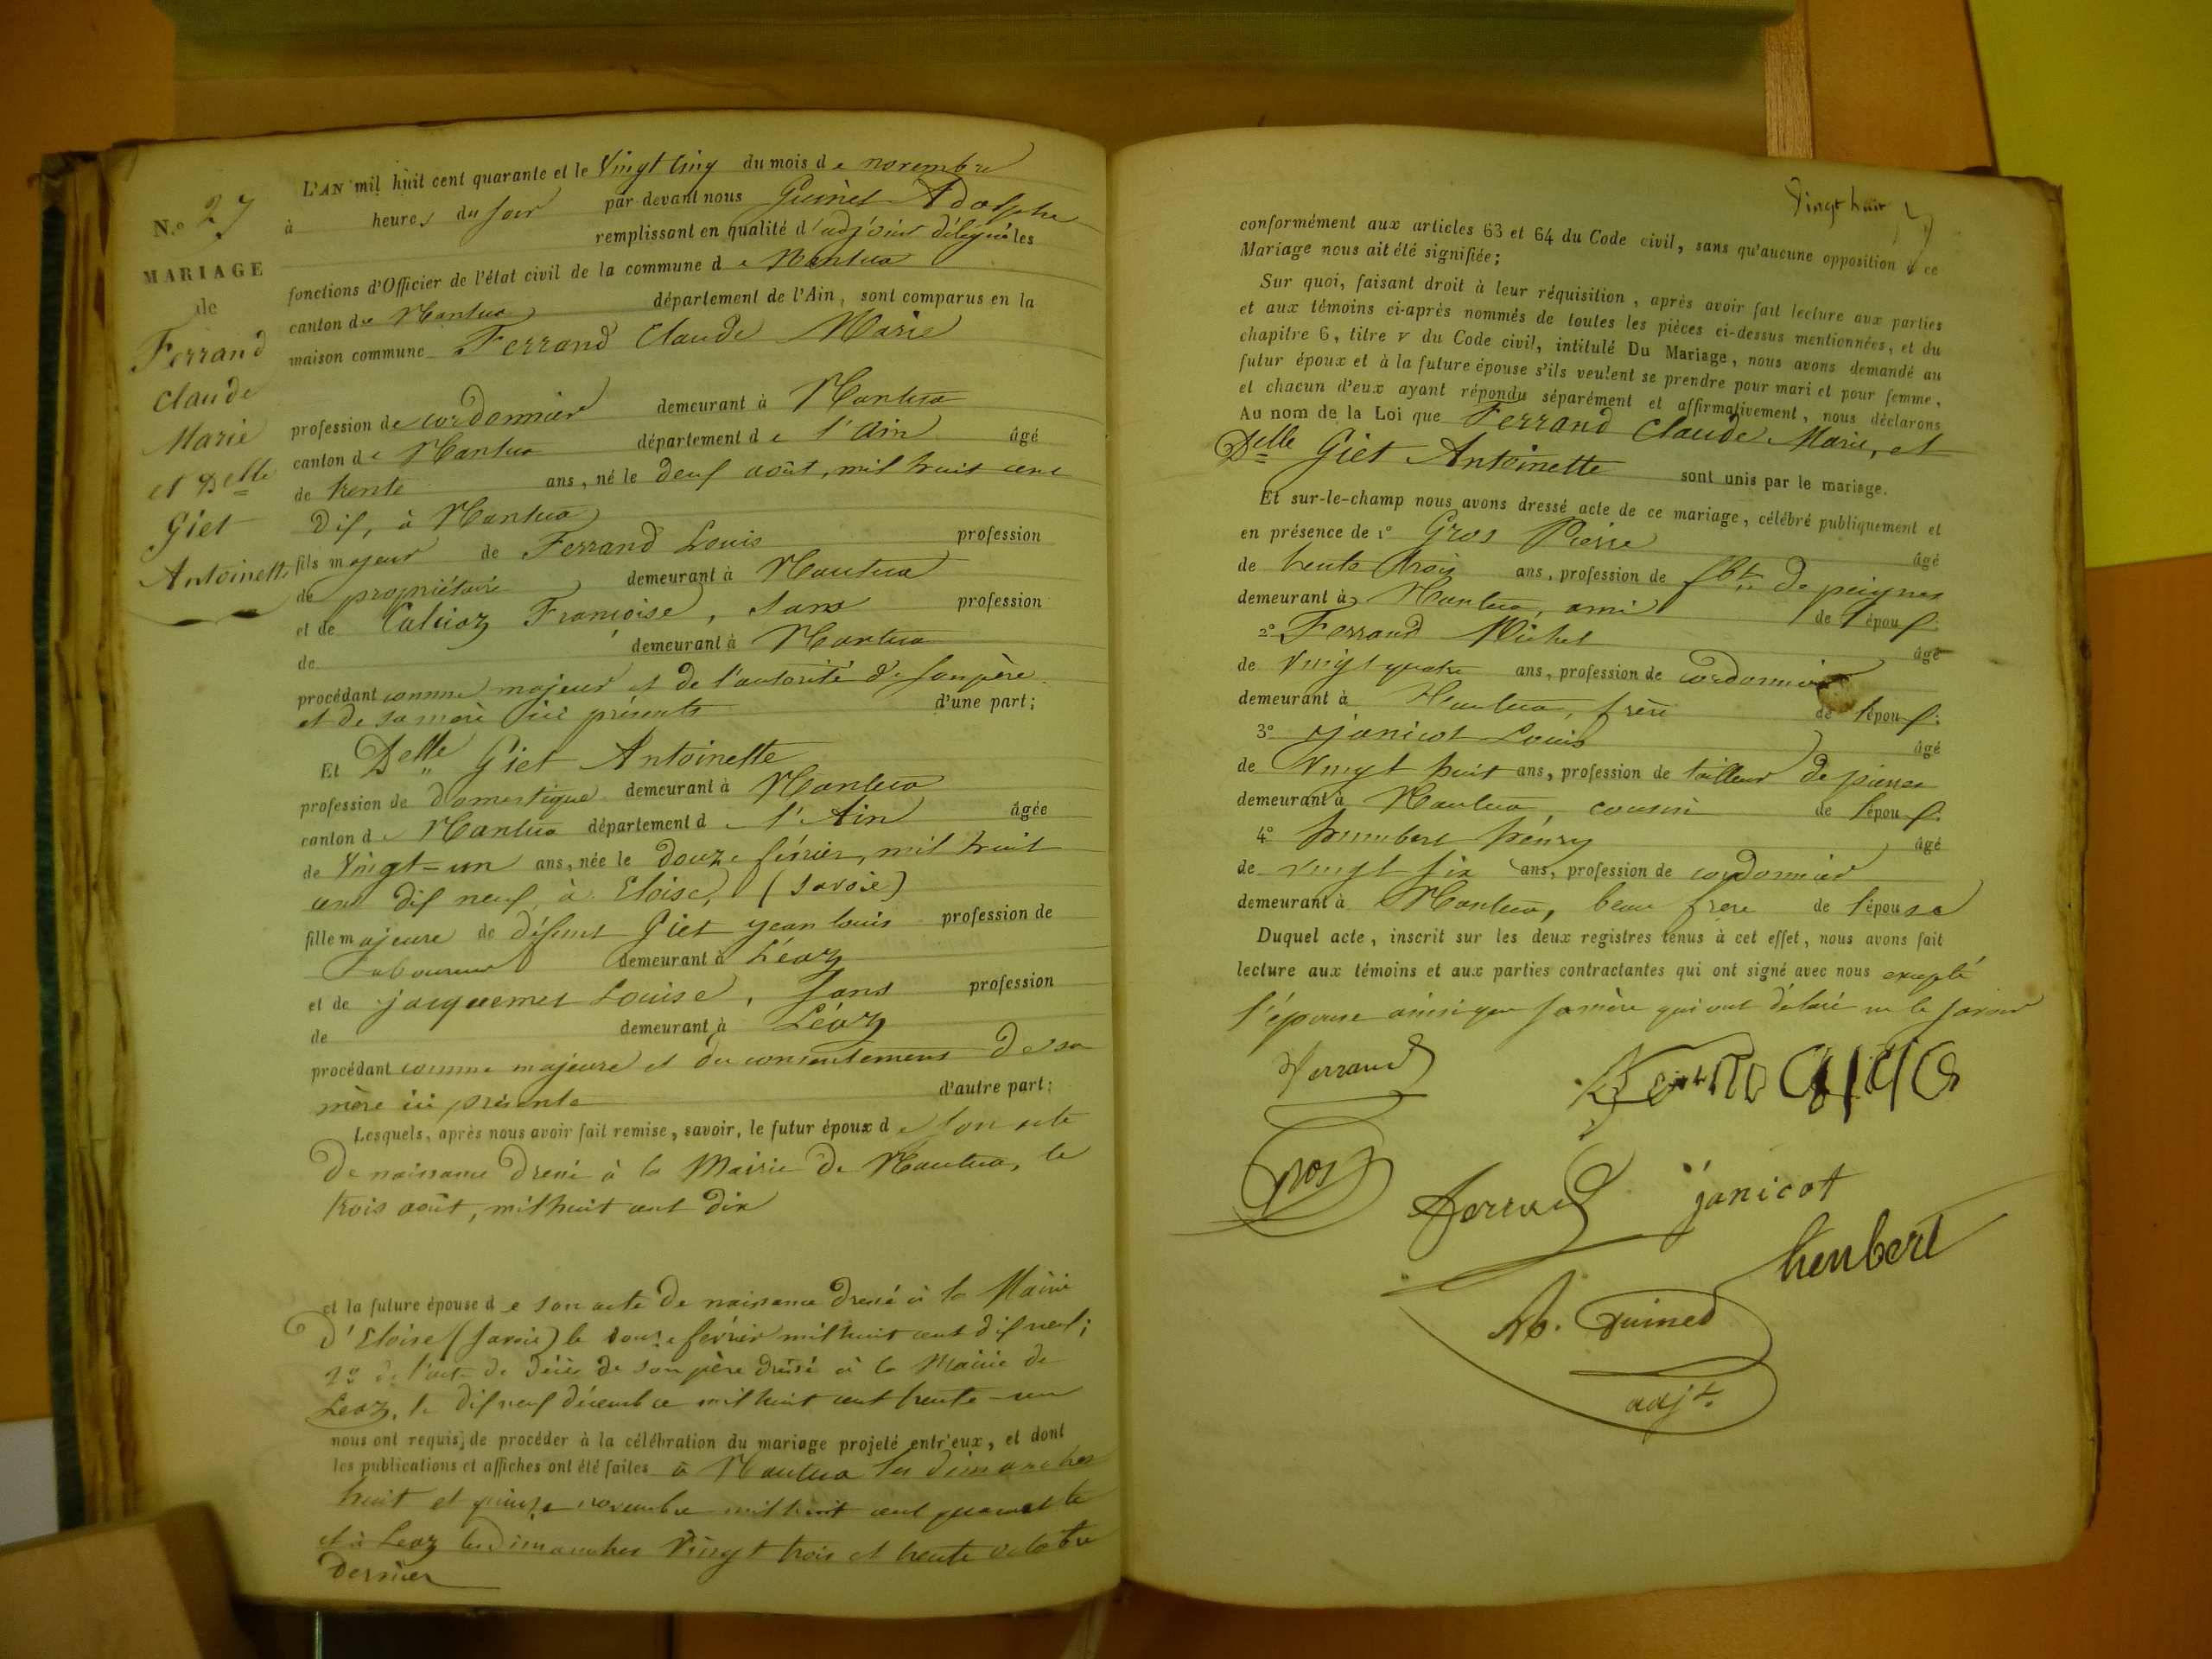 N.º 27
MARIAGE
de
Ferrand
Claude
Marie
et Delle
Giet
Antoinette
L'AN mil huit cent quarante et le Vingt cinq du mois de novembre
à heures du soir par-devant nous Guinet Adolphe
remplissant en qualité d'adjoint délégué les
fonctions d'Officier de l'état civil de la commune de Nantua
canton de Nantua département de l'Ain, sont comparus en la
maison commune Ferrand Claude Marie
profession de cordonnier demeurant à Nantua
canton de Nantua département de l'Ain âgé
de trente ans, né le deux août, mil huit cent
dix, à Nantua
fils majeur de Ferrand Louis profession
de propriétaire demeurant à Nantua
et de Françoise, sans profession
de demeurant à Nantua
procédant comme majeur et de l'autorité de son père
et de sa mère ici présents d'une part;
Et Delle Giet Antoinette
profession de domestique demeurant à Nantua
canton de Nantua département de l'Ain âgée
de Vingt=un ans, née le douze février, mil huit
cent dix neuf, à Eloise, (Savoie)
fille majeure de défunt Giet jean louis profession de
Laboureur demeurant à Léaz
et de jacquemet Louise, sans profession
de demeurant à Léaz
procédant comme majeure et du consentement de sa
mère ici présente d'autre part:
Lesquels, après nous avoir fait remise, savoir, le futur époux de son acte
de naissance dressé à la Mairie de Nantua, le
trois août, mil huit cent dix
et la future épouse de son acte de naissance dressé à la Mairie
d'Eloise (Savoie) le douze février mil huit cent dix neuf;
2º de l'acte de décès de son père dressé à la Mairie de
Leaz, le dix neuf décembre mil huit cent trente-un
nous ont requis de procéder à la célébration du mariage projeté entr'eux, et dont
les publications et affiches ont été faites à Nantua les dimanches
huit et quinze novembre mil huit cent quarante
et à Leaz les dimanches Vingt trois et trente octobre
dernier
Vingt huit
conformément aux articles 63 et 64 du Code civil, sans qu'aucune opposition à ce
Mariage nous ait été signifiée;
Sur quoi, faisant droit à leur réquisition, après avoir fait lecture aux parties
et aux témoins ci-après nommés de toutes les pièces ci-dessus mentionnées, et du
chapitre 6, titre v du Code civil, intitulé Du Mariage, nous avons demandé au
futur époux et à la future épouse s'ils veulent se prendre pour mari et pour femme,
et chacun d'eux ayant répondu séparément et affirmativement, nous déclarons
Au nom de la Loi que Ferrand Claude Marie, et
Delle Giet Antoinette sont unis par le mariage.
Et sur-le-champ nous avons dressé acte de ce mariage, célébré publiquement et
en présence de 1º Gros Pierre âgé
de trente trois ans, profession de fbt de peignes
demeurant à Nantua, ami de l'époux.
2º Ferrand Michel âgé
de vingt quatre ans, profession de cordonnier
demeurant à Nantua, frère de l'époux.
3º janicot Louis âgé
de Vingt huit ans, profession de tailleur de pierres
demeurant à Nantua, cousin de l'époux.
4º humbert henry âgé
de vingt six ans, profession de cordonnier
demeurant à Nantua, beau frere de l'épouse
Duquel acte, inscrit sur les deux registres tenus à cet effet, nous avons fait
lecture aux témoins et aux parties contractantes qui ont signé avec nous excepté
l'épouse ainsi que sa mère qui ont déclaré ne le savoir
Ferrand
Gros
Ferrand janicot
henbert
Ab. Guinet
adjt.